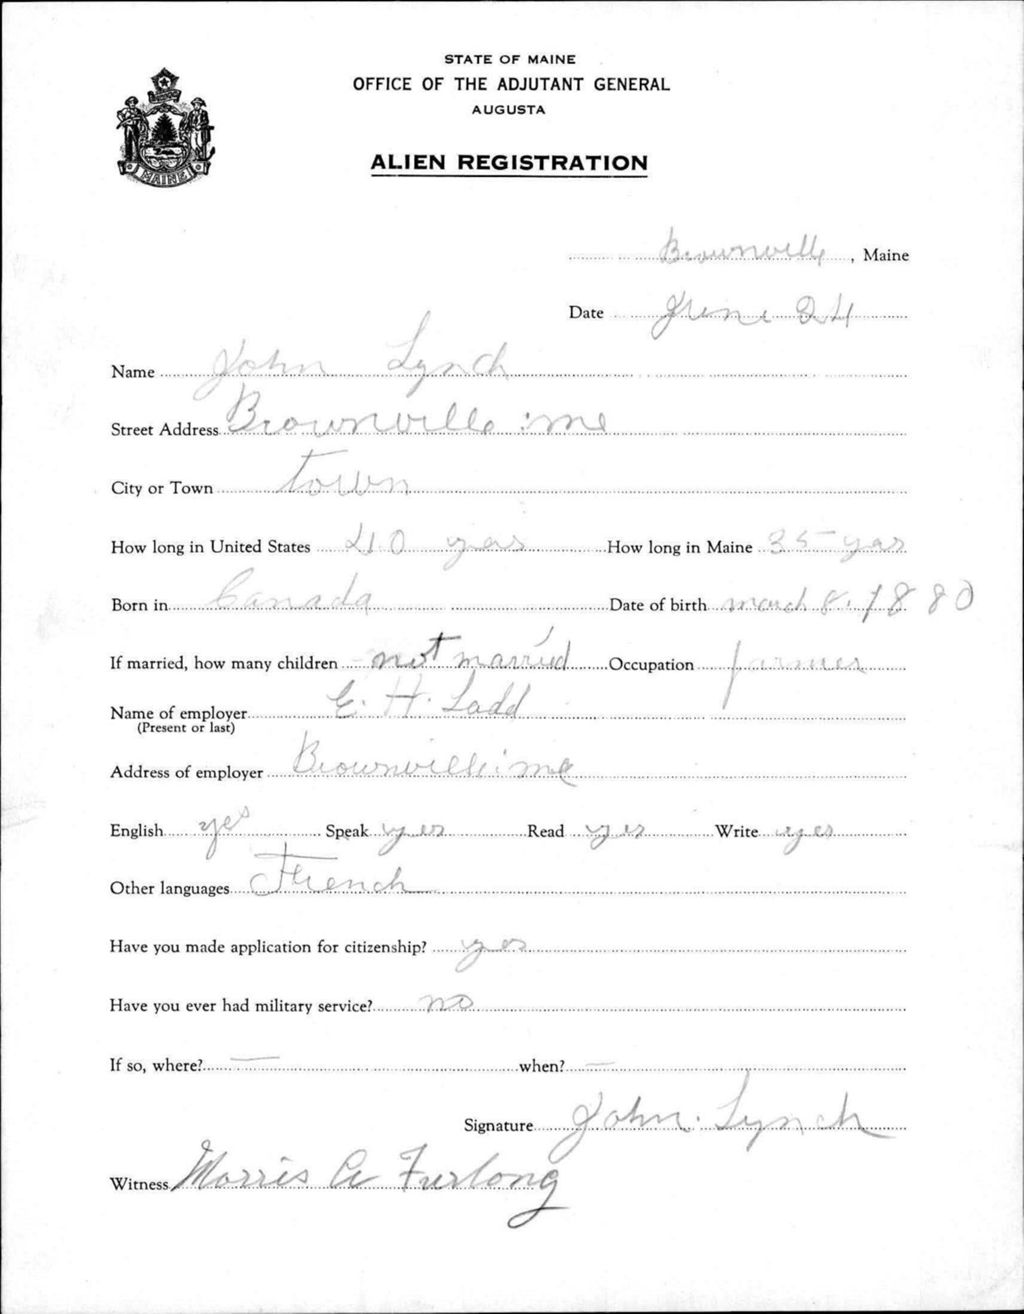 STATE OF MAINE
OFFICE OF THE ADJUTANT GENERAL
AUGUSTA
MAINE
ALIEN REGISTRATION
Brownville, Maine
Date June 24
Name John Lynch
Street Address Brownville Me
City or Town town
How long in United States 40 years How long in Maine 35 years
Born in Canada Date of birth march 8. 1880
If married, how many children not married Occupation farmer
Name of employer E. H. Ladd
(Present or last)
Address of employer Brownville me
English yes Speak yes Read yes Write yes
Other languages French
Have you made application for citizenship? yes
Have you ever had military service? no
If so, where? — when? —
Signature John Lynch
Witness Morris A Furlong